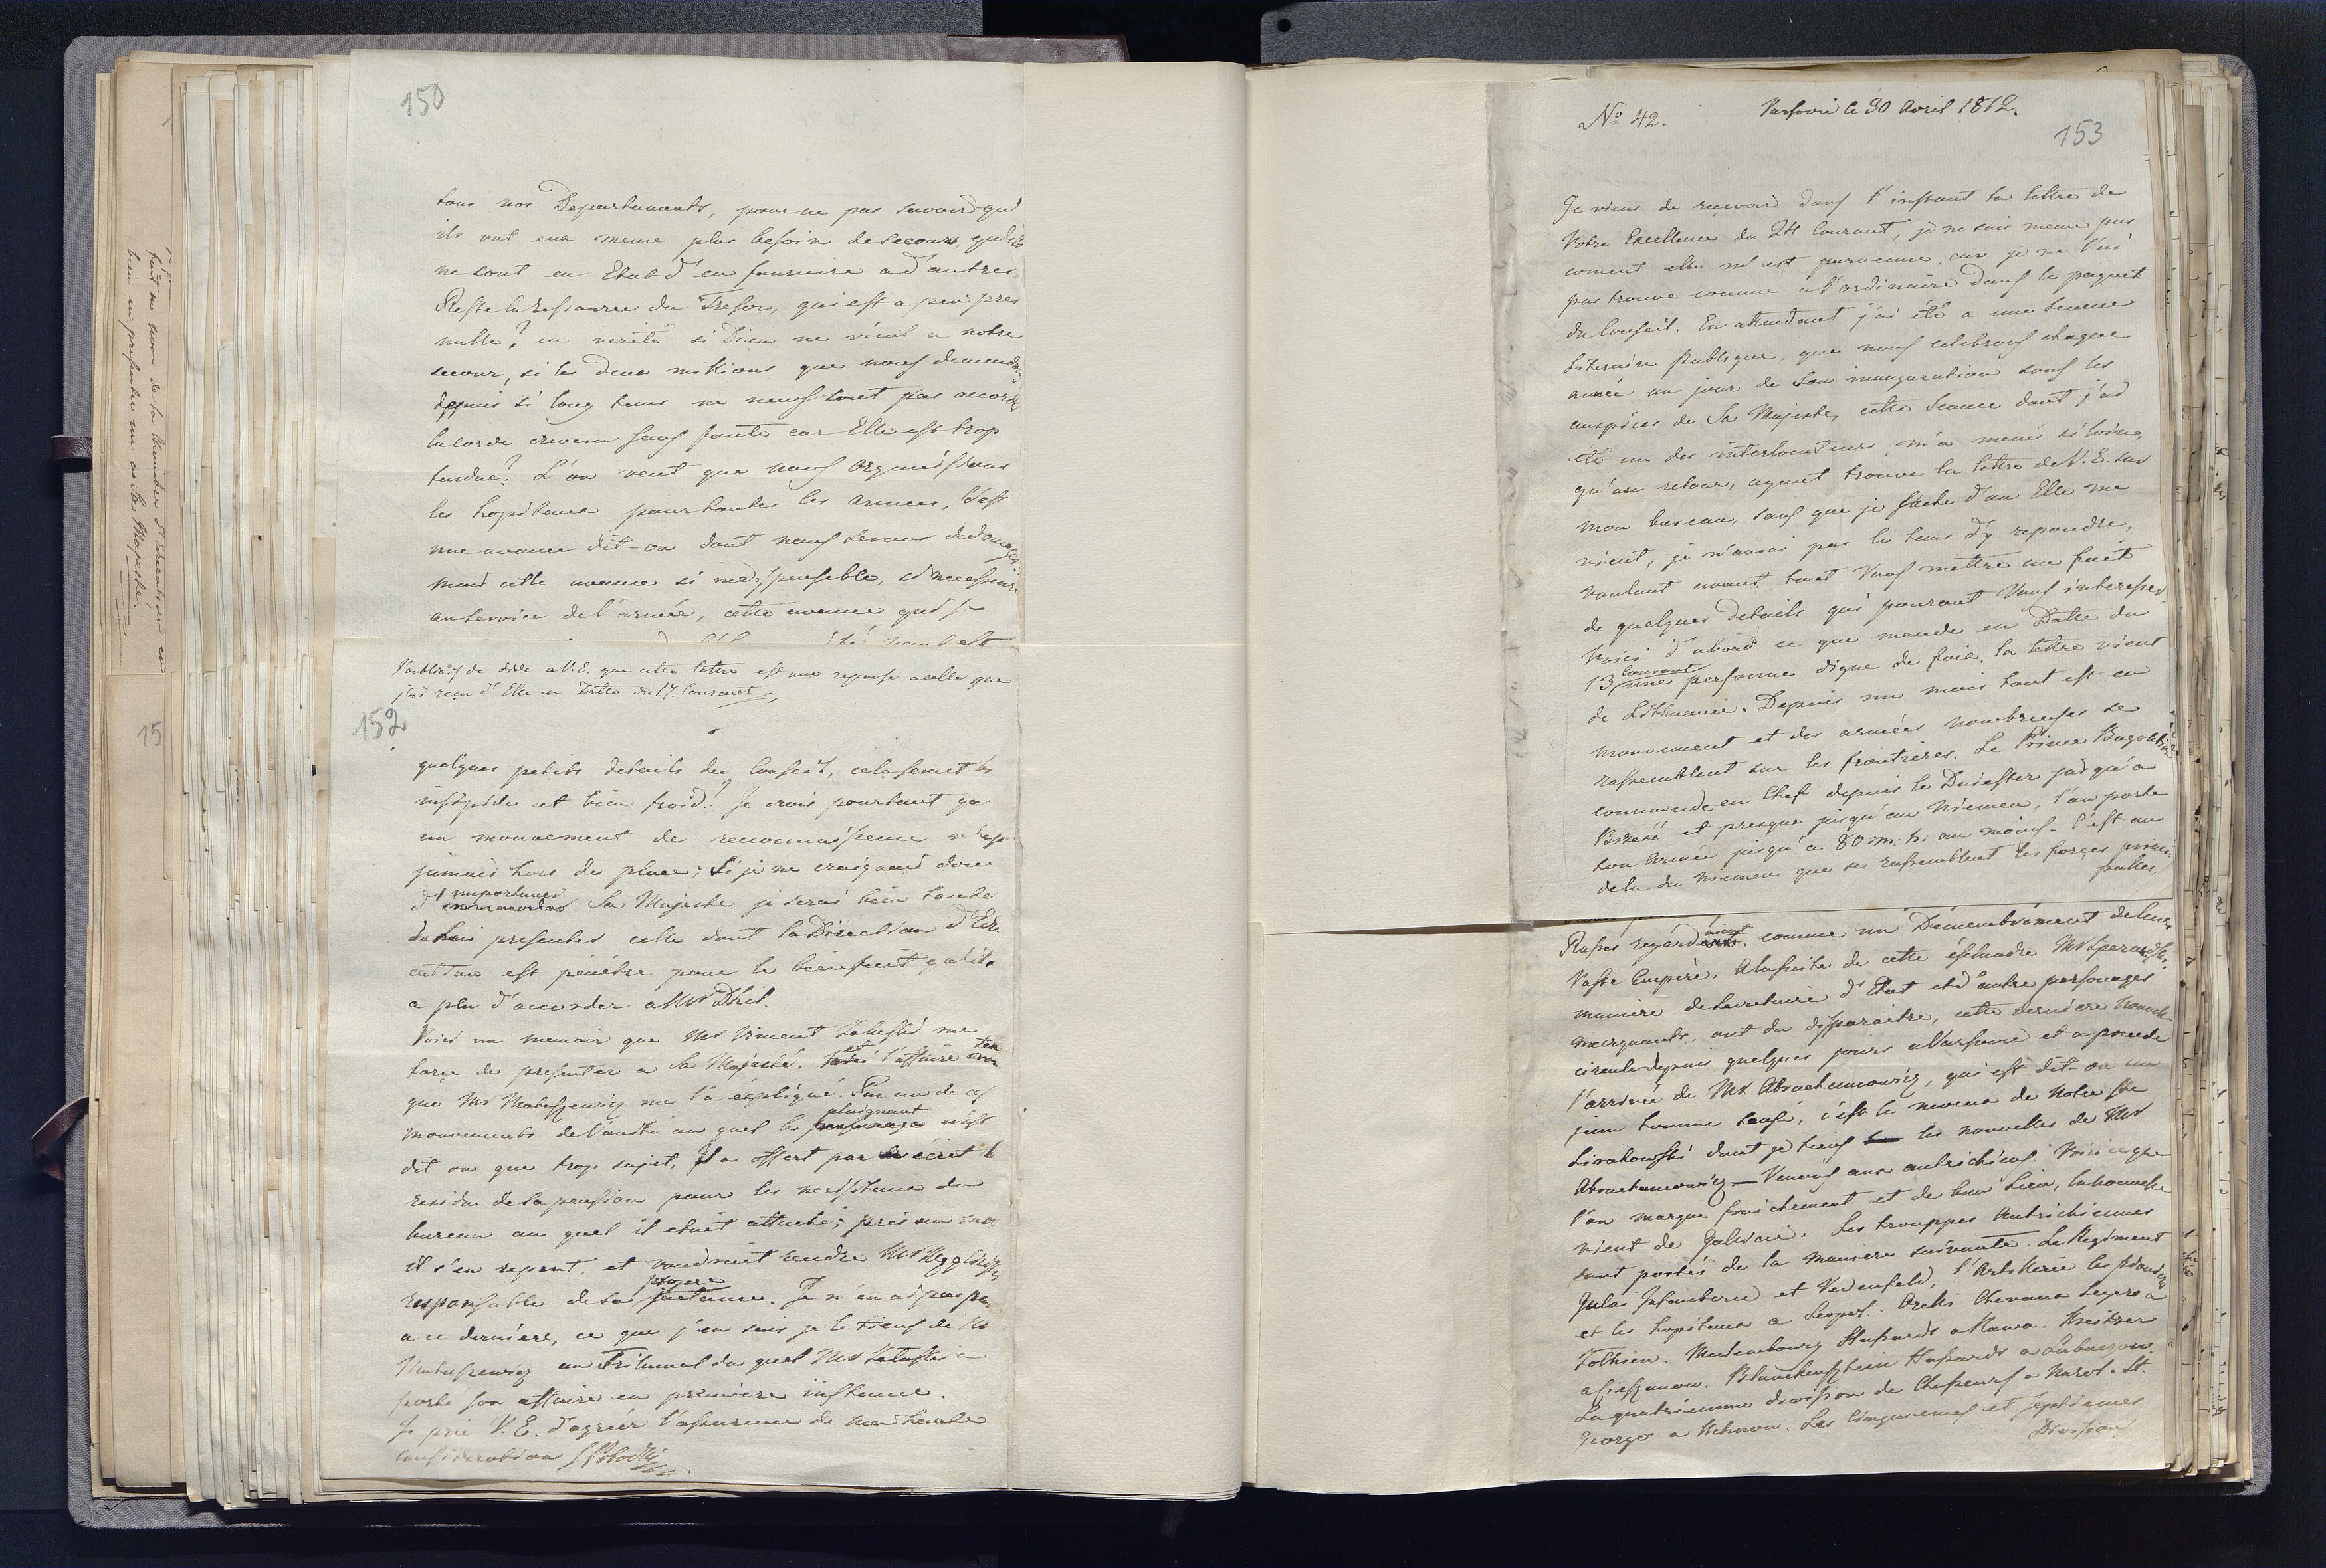 150
tous nos Departements, pour ne pas savoir qu'
ils ont eux meme plus besoin de secours, qu'ils
ne sont en Etat d'en fournire a d'autres
Reste la ressource du Tresor, qui est a peu pres
nulle? en verité si Dieu ne vient a notre
secour, si les deux millions que nous demandons
depuis si long tems ne nous sont pas accordés
la corde crevera sans faute car Elle est trop
tendue? L'on veut que nous organissions
les hopitaux pour toutes les armées, c'est
une avance dit-on dont nous serons dedomagés
mais cette avance si indispensable, si necessaire
au service de l'armée, cette avance qui se
J'oubliais de dire a V.E. que cette lettre est une reponse a celle que
j'ai reçu d'Elle en Datte du 17. Courant
152
quelques petits details du Conseil, cela serait
insipides et bien froid? Je crois pourtant qu
un mouvement de reconnaissance n'est
jamais hors de place; Si je ne craignais donc
d'importuner Sa Majesté je serais bien tenté
de Lui presenter celle dont la Direction d'Edu
cation est pénétré pour le bienfait qu'il
a plu d'accorder a Mr
Voici un memoir que Mr Vincent me
charge de presenter a Sa Majesté. l'affaire
que Mr Matuszewicz me l'a expliqué. Par un de ces
mouvements de vanité au quel le plaignant n'est
dit on que trop sujet, Il a offert par écrit le
residu de sa pension pour les necessiteux du
bureau au quel il etait attaché; pris au mot
il s'en repent, et voudrait rendre Mr
responsable de sa propre jactance. Je n'en ai pas
a ce derniere, ce que j'en sais je le tiens de Mr
Matuszewicz au Tribunal du quel Mr a
porté son affaire en premiere instance.
Je prie V.E. d'agréer l'assurance de ma haute
consideration
fait au nom de la Chambre d'Education en
bien en presenter un a Sa Majesté.
15
No 42.
Varsovie le 30 Avril 1812.
153
Je viens de recevoir dans l'instant la lettre de
Votre Excellence du 24 Courant, je ne sais meme pas
coment elle m'est parvenue, car je ne l'ai
pas trouvé comme a l'ordinaire dans le paquet
du Conseil. En attendant j'ai été a une seance
Literaire publique, que nous celebrons chaque
année au jour de son inauguration sous les
auspices de Sa Majesté, cette Seance dont j'ai
été un des interlocuteurs m'a mené si loin,
qu'au retour, ayant trouvé la lettre de V.E. sur
mon bureau, sans que je sache d'ou Elle me
vient, je n'aurai pas le tems d'y repondre,
voulant avant tout Vous mettre au fait
de quelques details qui pouront Vous interesser
Voici d'abord ce que mande en Datte du
13 courant une personne digne de foix, la lettre vient
de Lithuanie. Depuis un mois tout est en
mouvement et des armées nombreuses se
rassemblent sur les frontieres. Le Prince Bagration
commande en Chef depuis le Dniester jusqu'a
Brzesc et presque jusqu'au Niemen, l'on porte
son armée jusqu'a 80 m. h: au moins. C'est au
dela du Niemen que se rassemblent les forces princi-
pales,
Russes regardoient, comme un Démembrement de leur
vaste Empire. A la suite de cette esclandre Mr Speranski
maniere de Secretaire d'Etat et d'autre personages
marquants, ont du disparaitre, cette derniere Nouvelle
circule depuis quelques jours a Varsovie et a precedé
l'arrivée de Mr Abrachamowicz, qui est dit-on un
jeune homme sensé, c'est le neveux de Notre
dont je tiens les nouvelles de Mr
Abrachamowicz — Venons aux autrichiens. Voici ce que
l'on marque fraichement et de bon Lieu, la nouvelle
vient de Galicie. Les trouppes Autrichiennes
sont postés de la maniere suivante. Le Regiment
Gulai Infanterie et Videnfeld, l'Artillerie les
et les hopitaux a Leopol. Orelli Chevaux Legers a
Zolkiew. Hussards a Rawa.
a Ciesganow. Blankenstein Hussards a Lubaczow.
La quatrieme division de Chasseurs a Narol. St.
George a Les Cinquiemes et septiemes
Divisions